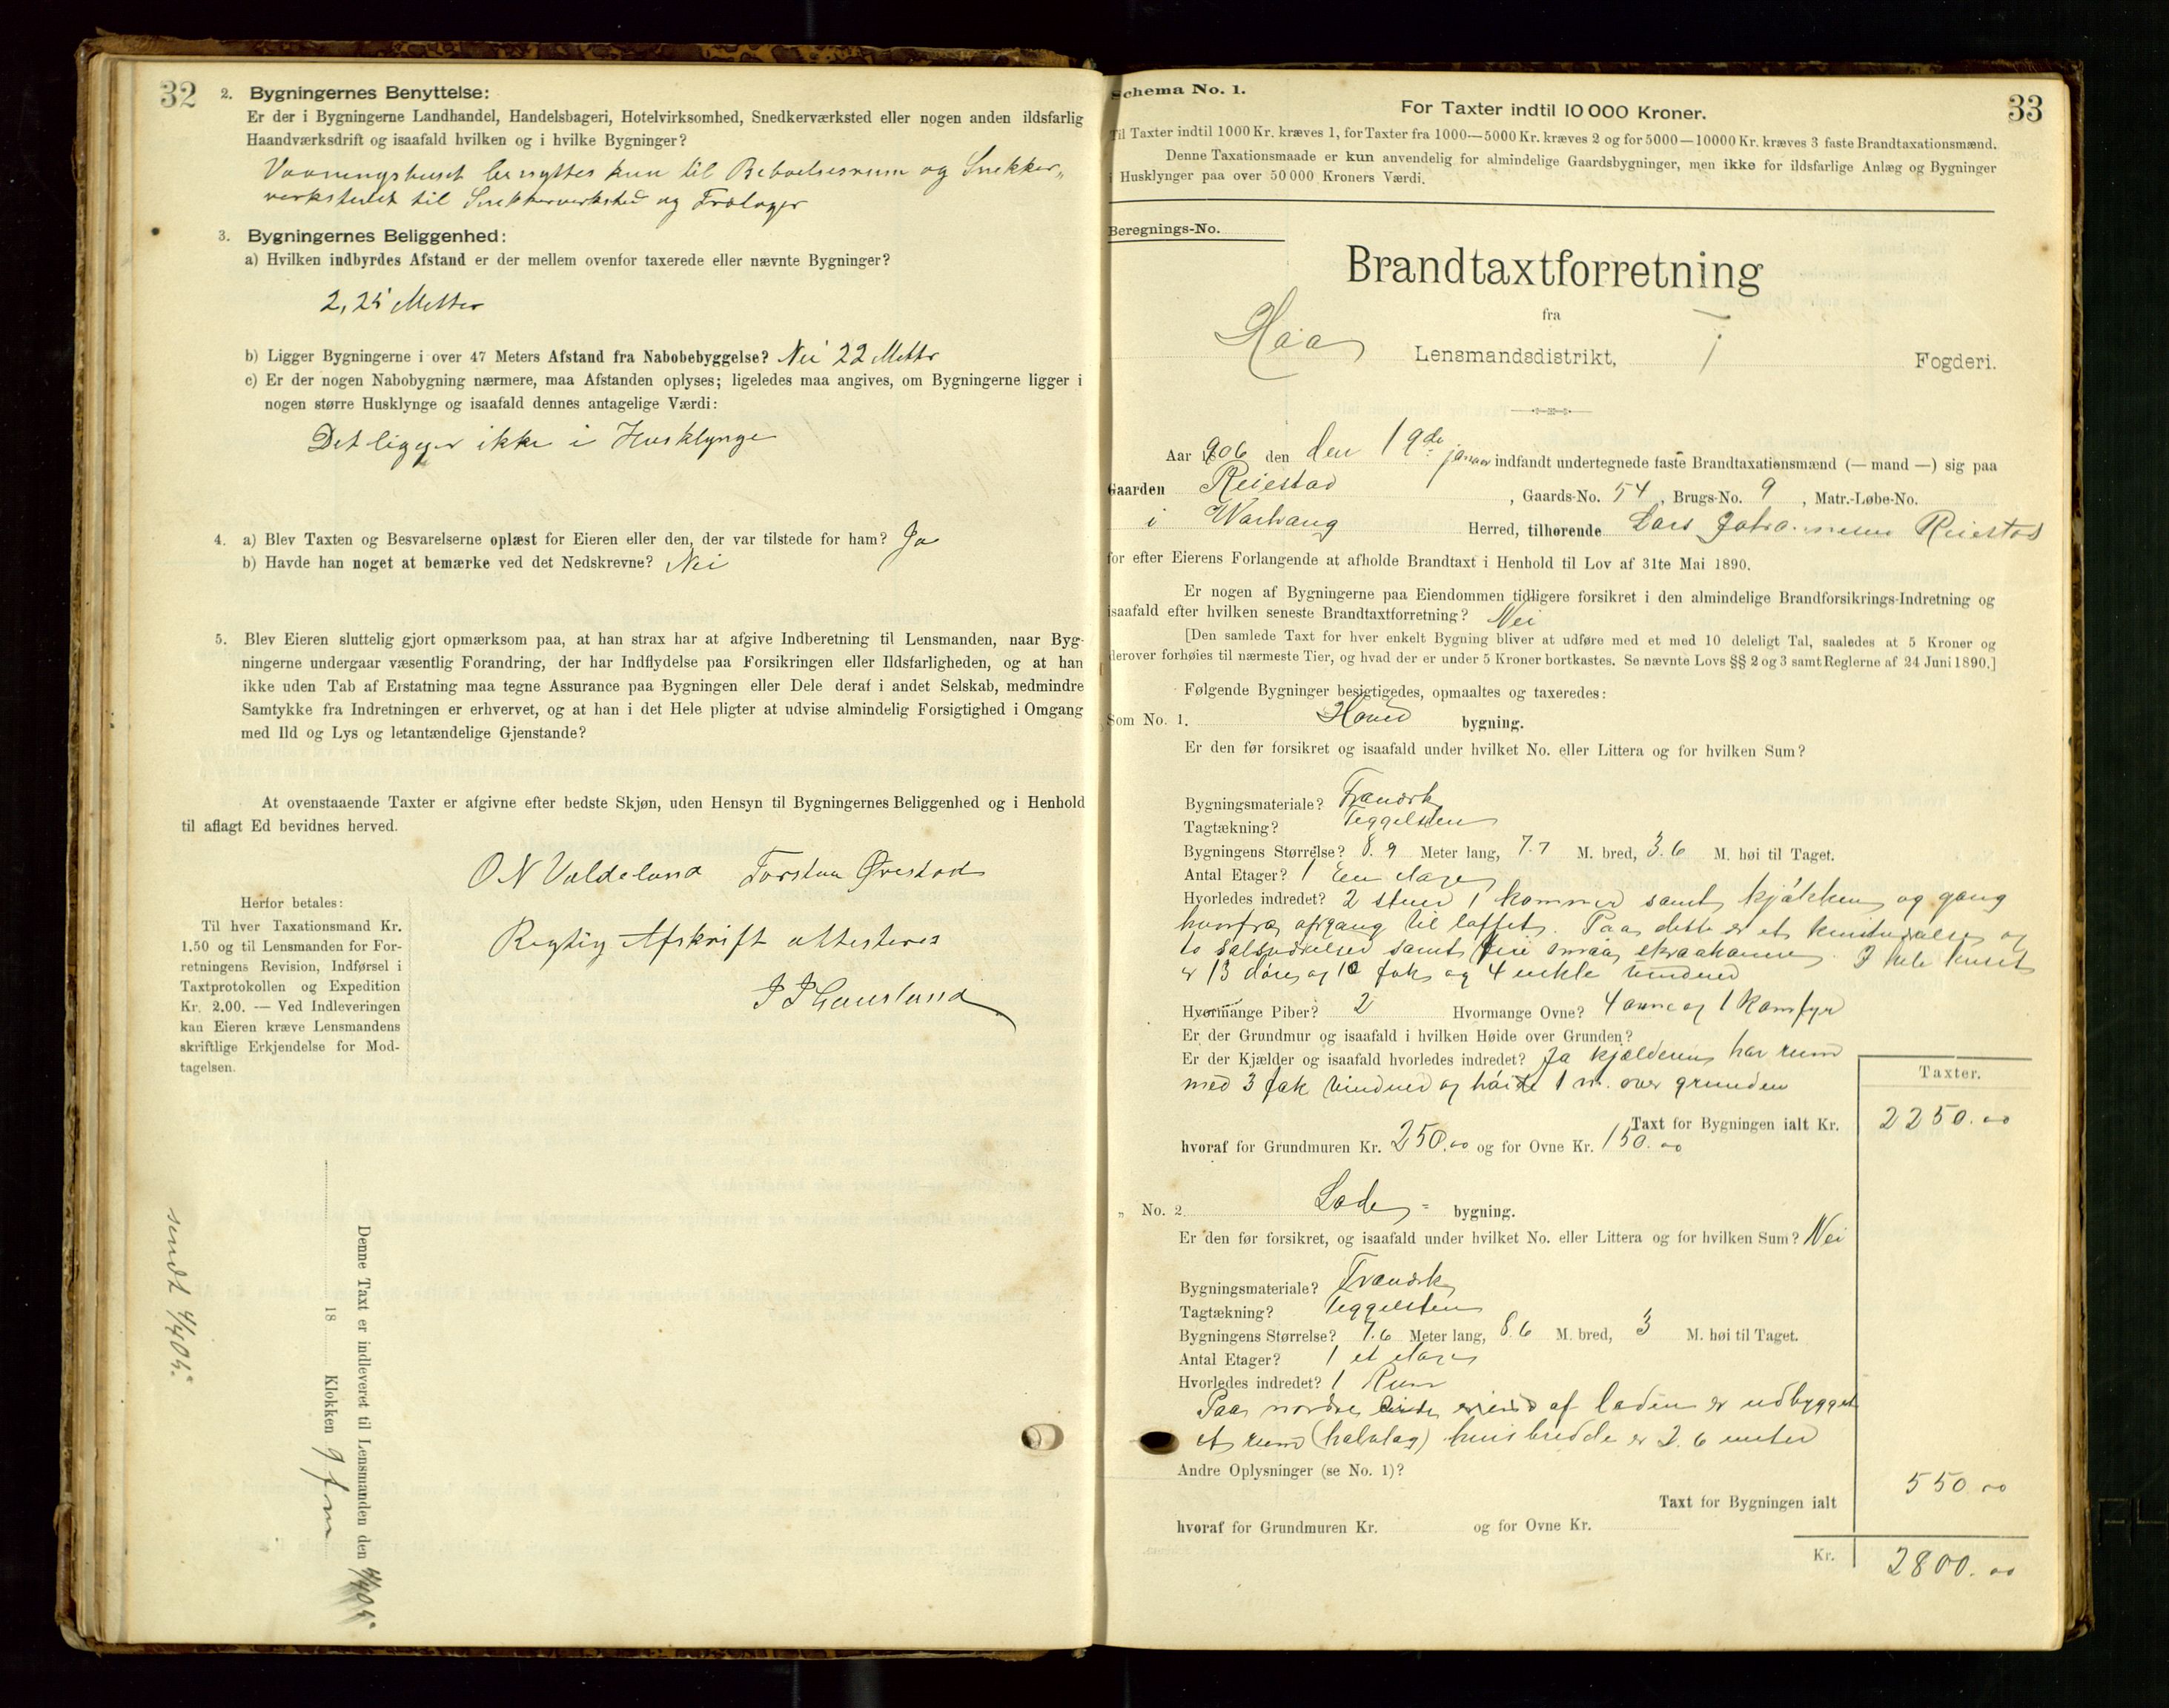 32
2. Bygningernes Benyttelse:
Er der i Bygningerne Landhandel, Handelsbageri, Hotelvirksomhed, Snedkerværksted eller nogen anden ildsfarlig
Haandværksdrift og isaafald hvilken og i hvilke Bygninger?
Vaaningshuset benyttes kun til Beboelsesrum og Snekker„
verkstedet til Snekkerverksted og Trælager
3. Bygningernes Beliggenhed:
a) Hvilken indbyrdes Afstand er der mellem ovenfor taxerede eller nævnte Bygninger?
2,25 Metter
b) Ligger Bygningerne i over 47 Meters Afstand fra Nabobebyggelse? Nei 22 Mettr
c) Er der nogen Nabobygning nærmere, maa Afstanden oplyses; ligeledes maa angives, om Bygningerne ligger i
nogen større Husklynge og isaafald dennes antagelige Værdi:
Det ligger ikke i Husklynge
4. a) Blev Taxten og Besvarelserne oplæst for Eieren eller den, der var tilstede for ham? Ja
b) Havde han noget at bemærke ved det Nedskrevne? Nei
5. Blev Eieren sluttelig gjort opmærksom paa, at han strax har at afgive Indberetning til Lensmanden, naar Byg-
ningerne undergaar væsentlig Forandring, der har Indflydelse paa Forsikringen eller Ildsfarligheden, og at han
ikke uden Tab af Erstatning maa tegne Assurance paa Bygningen eller Dele deraf i andet Selskab, medmindre
Samtykke fra Indretningen er erhvervet, og at han i det Hele pligter at udvise almindelig Forsigtighed i Omgang
med Ild og Lys og letantændelige Gjenstande?
At ovenstaaende Taxter er afgivne efter bedste Skjøn, uden Hensyn til Bygningernes Beliggenhed og i Henhold
til aflagt Ed bevidnes herved.
O N Valdeland Torsten Ørestad
Rigtig Afskrift attesteres
Herfor betales:
Til hver Taxationsmand Kr.
1.50 og til Lensmanden for For-
retningens Revision, Indførsel i
Taxtprotokollen og Expedition
Kr. 2.00. — Ved Indleveringen
kan Eieren kræve Lensmandens
skriftlige Erkjendelse for Mod-
tagelsen.
Denne Taxt er indleveret til Lensmanden den
18 Klokken 9 fm
sendt
33
Schema No. 1.
For Taxter indtil 10 000 Kroner.
Til Taxter indtil 1000 Kr. kræves 1, for Taxter fra 1000—5000 Kr. kræves 2 og for 5000—10000 Kr. kræves 3 faste Brandtaxationsmænd.
Denne Taxationsmaade er kun anvendelig for almindelige Gaardsbygninger, men ikke for ildsfarlige Anlæg og Bygninger
i Husklynger paa over 50 000 Kroners Værdi.
Beregnings-No.
Brandtaxtforretning
fra
Haa Lensmandsdistrikt, Fogderi.
Aar 1906 den den 19de januar indfandt undertegnede faste Brandtaxationsmænd (— mand —) sig paa
Gaarden Reiestad, Gaards-No. 54, Brugs-No. 9, Matr.-Løbe-No.
i Warhaug Herred, tilhørende Lars Johannesen Reiestad
for efter Eierens Forlangende at afholde Brandtaxt i Henhold til Lov af 31te Mai 1890.
Er nogen af Bygningerne paa Eiendommen tidligere forsikret i den almindelige Brandforsikrings-Indretning og
isaafald efter hvilken seneste Brandtaxtforretning? Nei
[Den samlede Taxt for hver enkelt Bygning bliver at udføre med et med 10 deleligt Tal, saaledes at 5 Kroner og
derover forhøies til nærmeste Tier, og hvad der er under 5 Kroner bortkastes. Se nævnte Lovs §§ 2 og 3 samt Reglerne af 24 Juni 1890.]
Følgende Bygninger besigtigedes, opmaaltes og taxeredes:
Som No. 1. Hoved bygning.
Er den før forsikret og isaafald under hvilket No. eller Littera og for hvilken Sum?
Bygningsmateriale? Træverk
Tagtækning? Teggelsten
Bygningens Størrelse? 8.9 Meter lang, 7.7 M. bred, 3.6 M. høi til Taget.
Antal Etager? 1 Een etage
Hvorledes indredet? 2 stuer 1 kammer samt kjøkken og gang
hvorfra opgang til loftet. Paa dette er et kvistværelse og
to salsværelser samt fire smaa skraakammer. I hele huset
er 13 døre og 10 fak og 4 enkle vinduer
Hvormange Piber? 2 Hvormange Ovne? 4 ovne og 1 Komfyr
Er der Grundmur og isaafald i hvilken Høide over Grunden?
Er der Kjælder og isaafald hvorledes indredet? Ja kjælderen har rum
med 3 fak vinduer og høide 1 m. over grunden
Taxter.
Taxt for Bygningen ialt Kr. 2250.00
hvoraf for Grundmuren Kr. 250.00 og for Ovne Kr. 150.00
„ No. 2 Lade- bygning.
Er den før forsikret, og isaafald under hvilket No. eller Littera og for hvilken Sum? Nei
Bygningsmateriale? Træverk
Tagtækning? Teggelsten
Bygningens Størrelse? 7.6 Meter lang, 8.6 M. bred, 3 M. høi til Taget.
Antal Etager? 1 et etage
Hvorledes indredet? 1 Rum
Paa nordre af laden er udbygget
et rum (halvtag) hvis bredde er 2.6 meter
Andre Oplysninger (se No. 1)?
Taxt for Bygningen ialt 550.00
hvoraf for Grundmuren Kr. og for Ovne Kr.
Kr. 2800.00